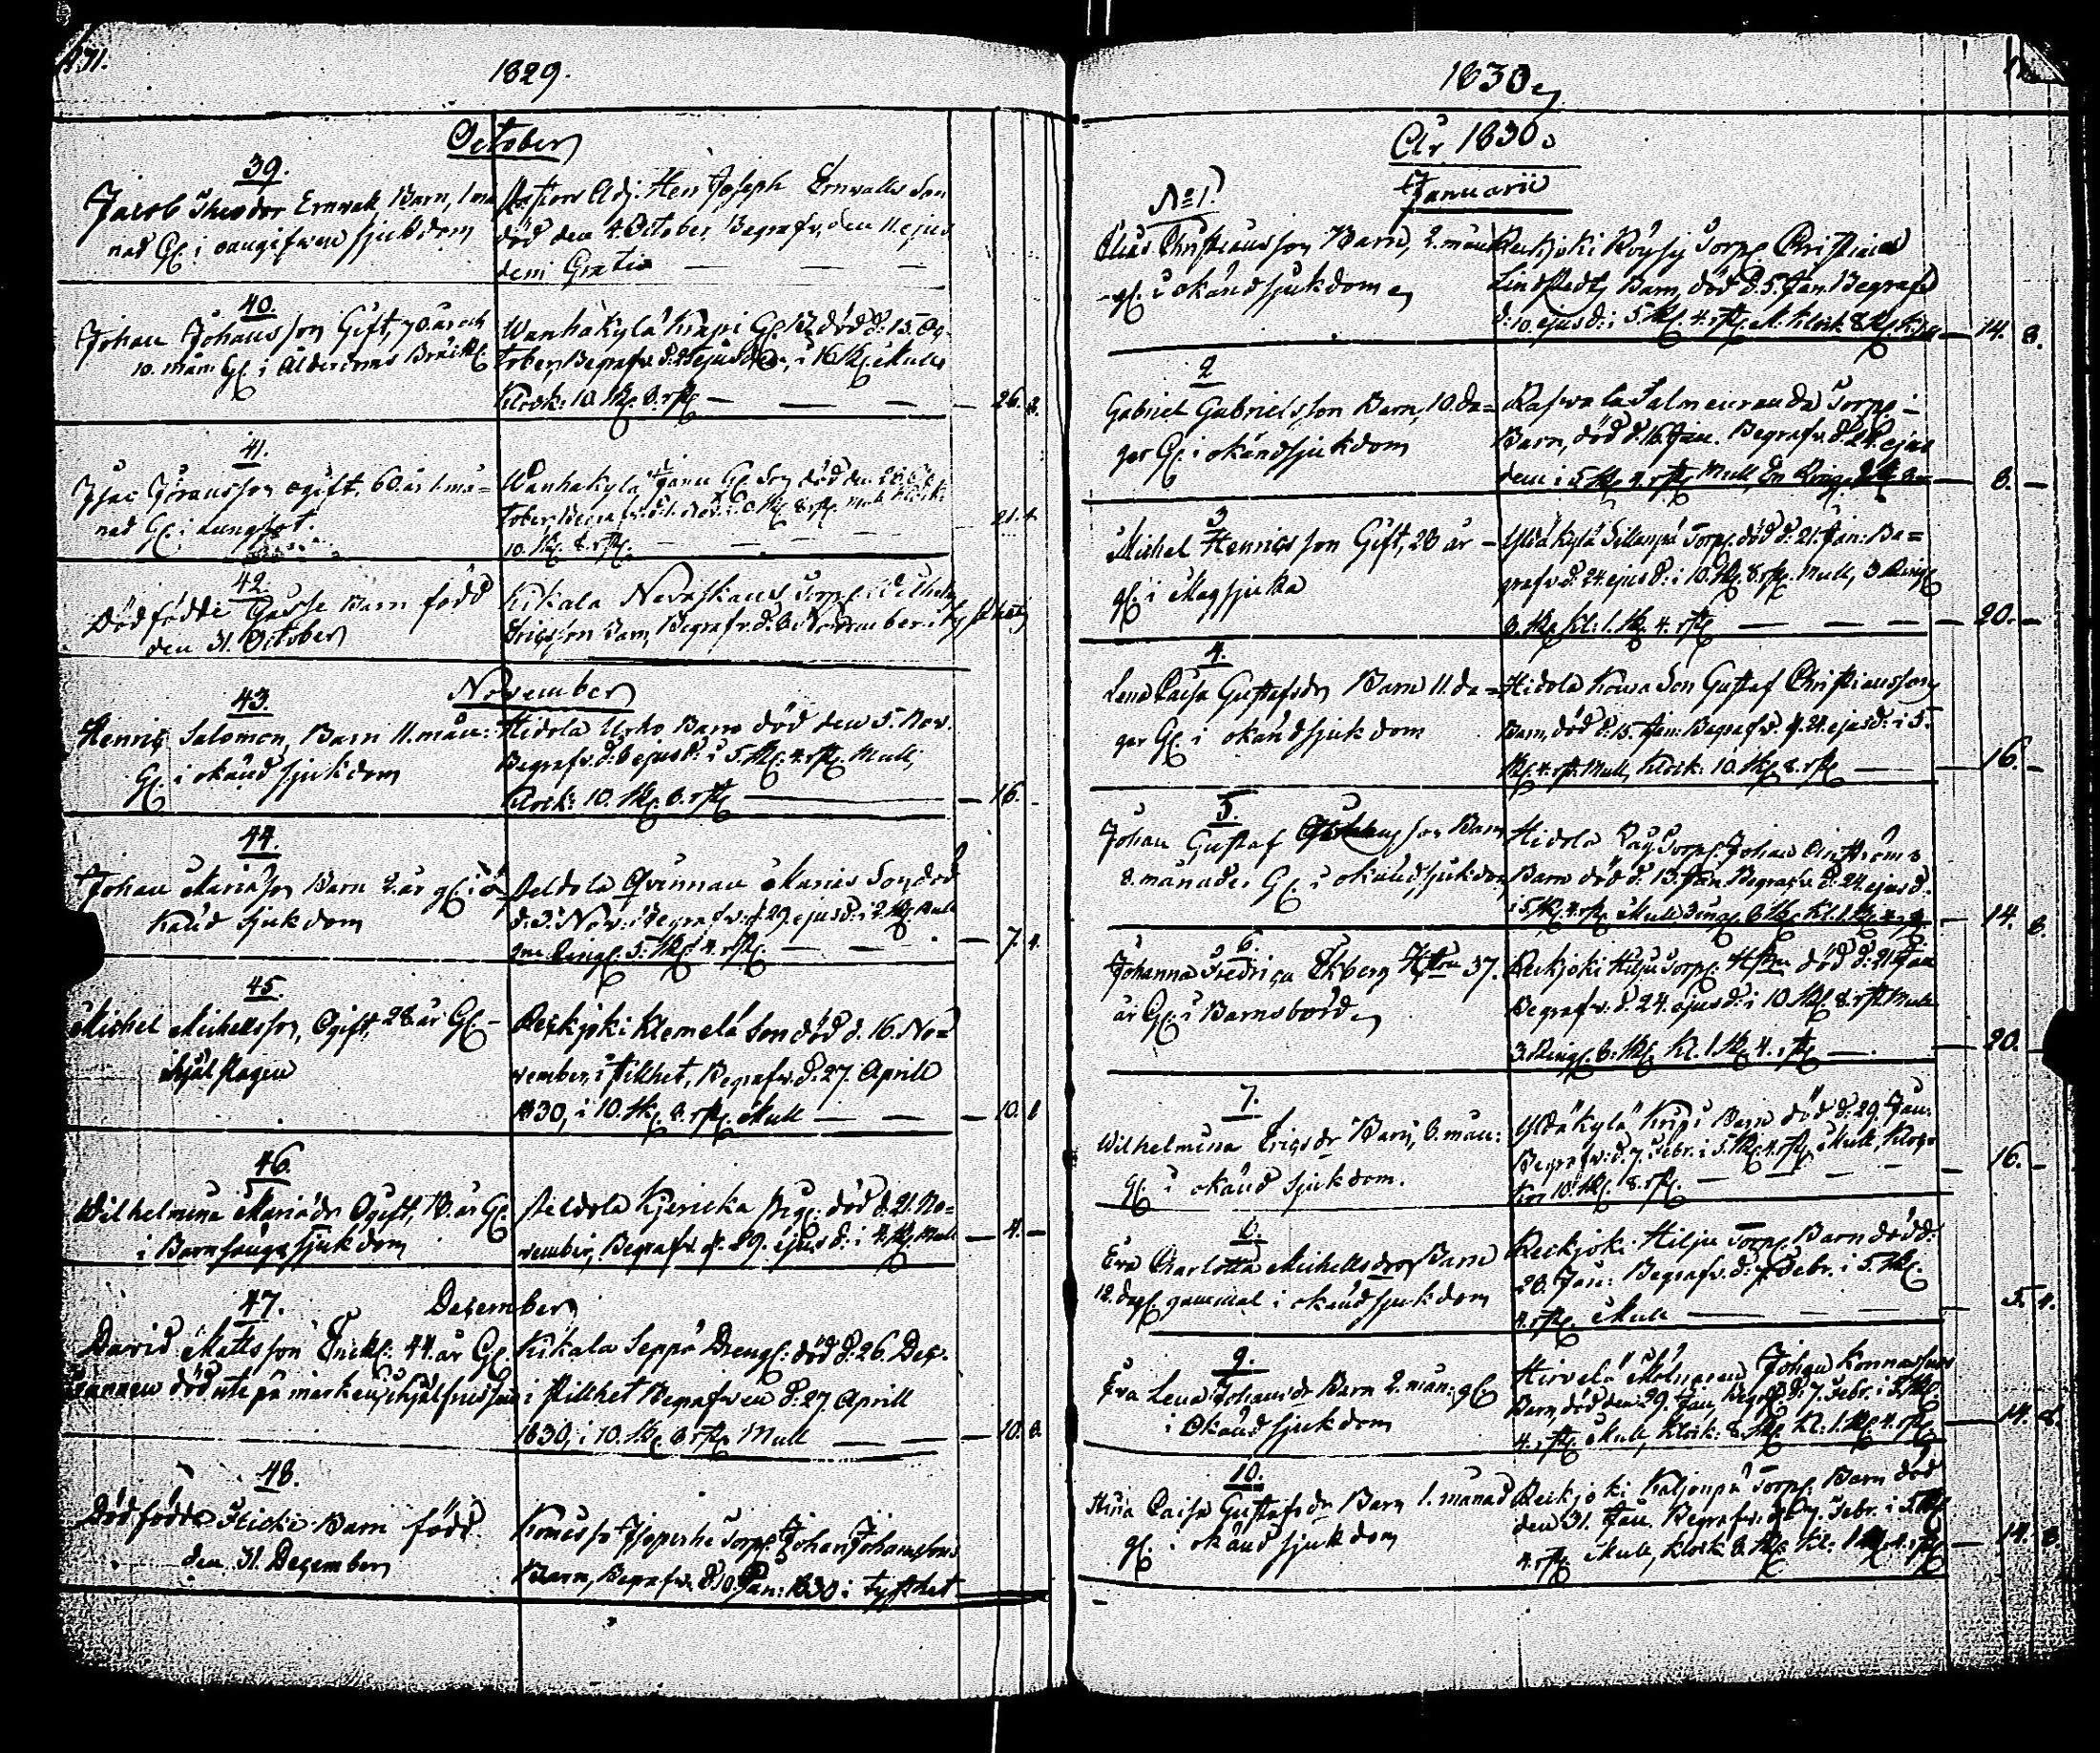 1829.
October
39.
Jacob Theodor Ernvall Barn, 1 må
nad Gl. i oangifwen sjukdom
Pastors Adj. Herr Joseph Ernvalls Son
död den 4 October, Begrafv. den 11 ejus
dem Gratis
40.
Johan Johansson Gift, 70 år och
10. mån: Gl. i Ålderdoms Bräckl.
Wanhakylä Krapi död d: 15. Oc
tober, Begrafv. d. 25 ejusd. i 16 sk. Mull
Klock: 10. sk. 8. rst. 26. 8.
41.
Isac Göransson ogift, 60. år 1. må=
nad Gl. i Lungsot.
Wanhakylä Son död den
tober, Begrafv. d. 1. Nov. 8 rst. Mull Klock:
10. sk. 8. rst. 21. 4.
42.
Dödfödde Gosse Barn född
den 31. October
Kikala Torp.
Ericsson Barn, Begrafv. d. 8 November i tysthet
November
43.
Henric Salomon, Barn 11. mån:
Gl. i okänd sjukdom
Hidola Uoho Barn död den 5. Nov.
Begrafv. d. 8 ejusd: i 5. sk. 4. rst. Mull,
Klock: 10. sk. 8. rst. 16. -
44.
Johan Mariäson Barn 2. år gl. i o-
känd sjukdom
Peldola Qvinnan Marias Son död
d. Nov. Begrafv: d. 29. ejusd: i 2. sk. Mull
en Ringn. 5. sk. 4. rst. 7. 4.
45.
Michel Michelsson, Ogift, 28 år Gl. -
ihjäl slagen
Reckjoki Klemelä Son död d. 16. No=
vember, i stillhet, Begrafv. d: 27. Aprill
1830, i 10. sk. 8. rst. Mull 10. 8
46.
Wilhelmina Mariädr Ogift, år Gl.
i Barnsängssjukdom
Peldola Kjericka Pig. död d. 21. No=
vember, Begrafv. d. 29. ejusd: i 4. sk. Mull 4. -
47. December
David Mattsson Enckl: 44. år Gl.
död ute på marken, ihjälfrusen
Kikala Seppä Dreng: död d: 26. Dec.
i stillhet Begrafven d: 27. Aprill
1830, i 10. sk. 8. rst. Mull 10. 8.
48.
Dödfödde Flicke Barn född
den 31. December
Torp. Johan Johanssons
Barn, Begrafv. d. 10 Jan: 1830 i tysthet
1830.
År 1830.
Januarii
No 1.
Elias Christiansson Barn, 2. mån
gl. i okänd sjukdom
Reckjoki Röysy Torp. Christian
Lindstedts Barn, död d. 5. Jan. Begrafv
d: 10. ejusd: i 5 sk. 4. rst. M. Klock 8 sk. 14. 8.
2
Gabriel Gabrielsson Barn, 10. da=
gar Gl. i okänd sjukdom
Rajvala Salmenranda Torp. -
Barn, död d. 16. Jan. Begrafv. d. 24. ejus
dem i 5 sk. 4. rst. Mull, En Ringn. 8. -
3
Michel Henricsson Gift, 28 år -
gl. i Magsjuka
Yläkylä Sillanpä Torp. död d: 21. Jan: Be=
grafv. d: 24. ejusd: i 10. sk. 8. rst. Mull, 3 Ringn
8. sk. kl. 1. sk. 4. rst. 20. -
4.
Lena Caisa Gustafsdr Barn 11 da=
gar Gl. i okänd sjukdom
Hidola Son Gustaf Christianssons
Barn, död d: 15. Jan: Begrafv. d. 24. ejusd: i 5.
sk. 4. rst. Mull, Klock: 10. sk. 8. rst. 16. -
5.
Johan Gustaf Barn
8. månader Gl. i okänd sjukdom
Hidola Torp. Johan
Barn död d. 13. Jan. Begrafv d. 24. ejusd.
i 5. sk. 4. rst. Mull, Kl. 1. sk. 4. 14. 8.
6.
Johanna Fredrica Ekberg Hustru 37.
år Gl. i Barnsbörd
Reckjoki Hilju Torp. död d. 21 Jan
Begrafv. d. 24. ejusd: i 10 sk. 8. rst. Mull
3. Ringn. 8: sk. Kl. 1. sk. 4. rst. 20.
7.
Wilhelmina Ericsdr Barn, 8. mån:
gl. i okänd sjukdom.
Yläkylä Krapi Barn död d. 29. Jan.
Begrafv: d. 7. Febr. i 5. sk. 4. rst. Mull, Kloc-
kor 10. sk. 8. rst. 16. -
8.
Eva Charlotta Michelsdr Barn
12. dag. gammal i okänd sjukdom
Reckjoki Hilju Torp. Barn död d:
20. Jan: Begrafv. d: 7. Febr. i 5. sk.
4. rst. Mull 5. 4.
9.
Eva Lena Johansdr Barn 2. mån. gl
i Okänd sjukdom
Hirvelä Mölnaren Johan
Barn, död den 29. Jan, Begrf. d. 7. Febr. i 5 sk.
4. rst. Mull, Klock: 8. sk. Kl: 1. sk. 4. rst. 14. 8.
10.
Caisa Gustafsdr Barn 1. månad
gl. i okänd sjukdom
Reckjoki Kaljonpä Torp. Barn död
den 31. Jan. Begrafv. d. 7. Febr. i 5 sk.
4. rst. Mull, Klock 8. sk. Kl: 1 sk. 4. rst. 14. 8.